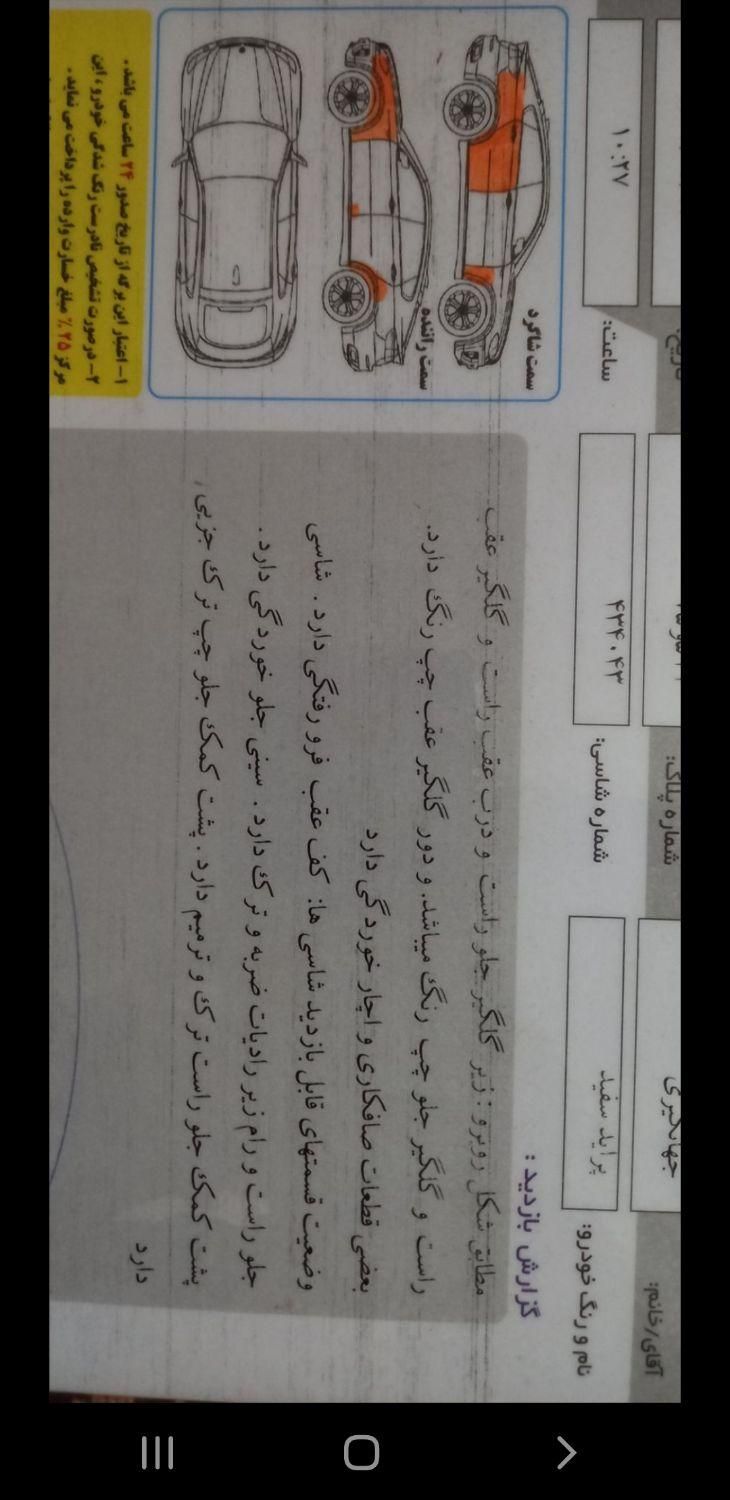 آقای/خانم:
جهانگیری
شماره پلاک:
تاریخ:
نام و رنگ خودرو:
پراید سفید
شماره شاسی:
۴۳۴۰۴۳
ساعت:
۱۰:۲۷
گزارش بازدید :
مطابق شکل روبرو : زیر گلگیر جلو راست و درب عقب راست و گلگیر عقب
راست و گلگیر جلو چپ رنگ میباشد. و دور گلگیر عقب چپ رنگ دارد.
بعضی قطعات صافکاری و اچار خوردگی دارد
وضعیت قسمتهای قابل بازدید شاسی ها: کف عقب فرو رفتگی دارد . شاسی
جلو راست و رام زیر رادیات ضربه و ترک دارد . سینی جلو خوردگی دارد .
پشت کمک جلو راست ترک و ترمیم دارد . پشت کمک جلو چپ ترک جزیی
دارد
سمت شاگرد
سمت راننده
۱- اعتبار این برگه از تاریخ صدور ۲۴ ساعت می باشد.
۲- در صورت تشخیص نادرست رنگ شدگی خودرو، این
مرکز ۲۵٪ مبلغ خسارت وارده را پرداخت می نماید.